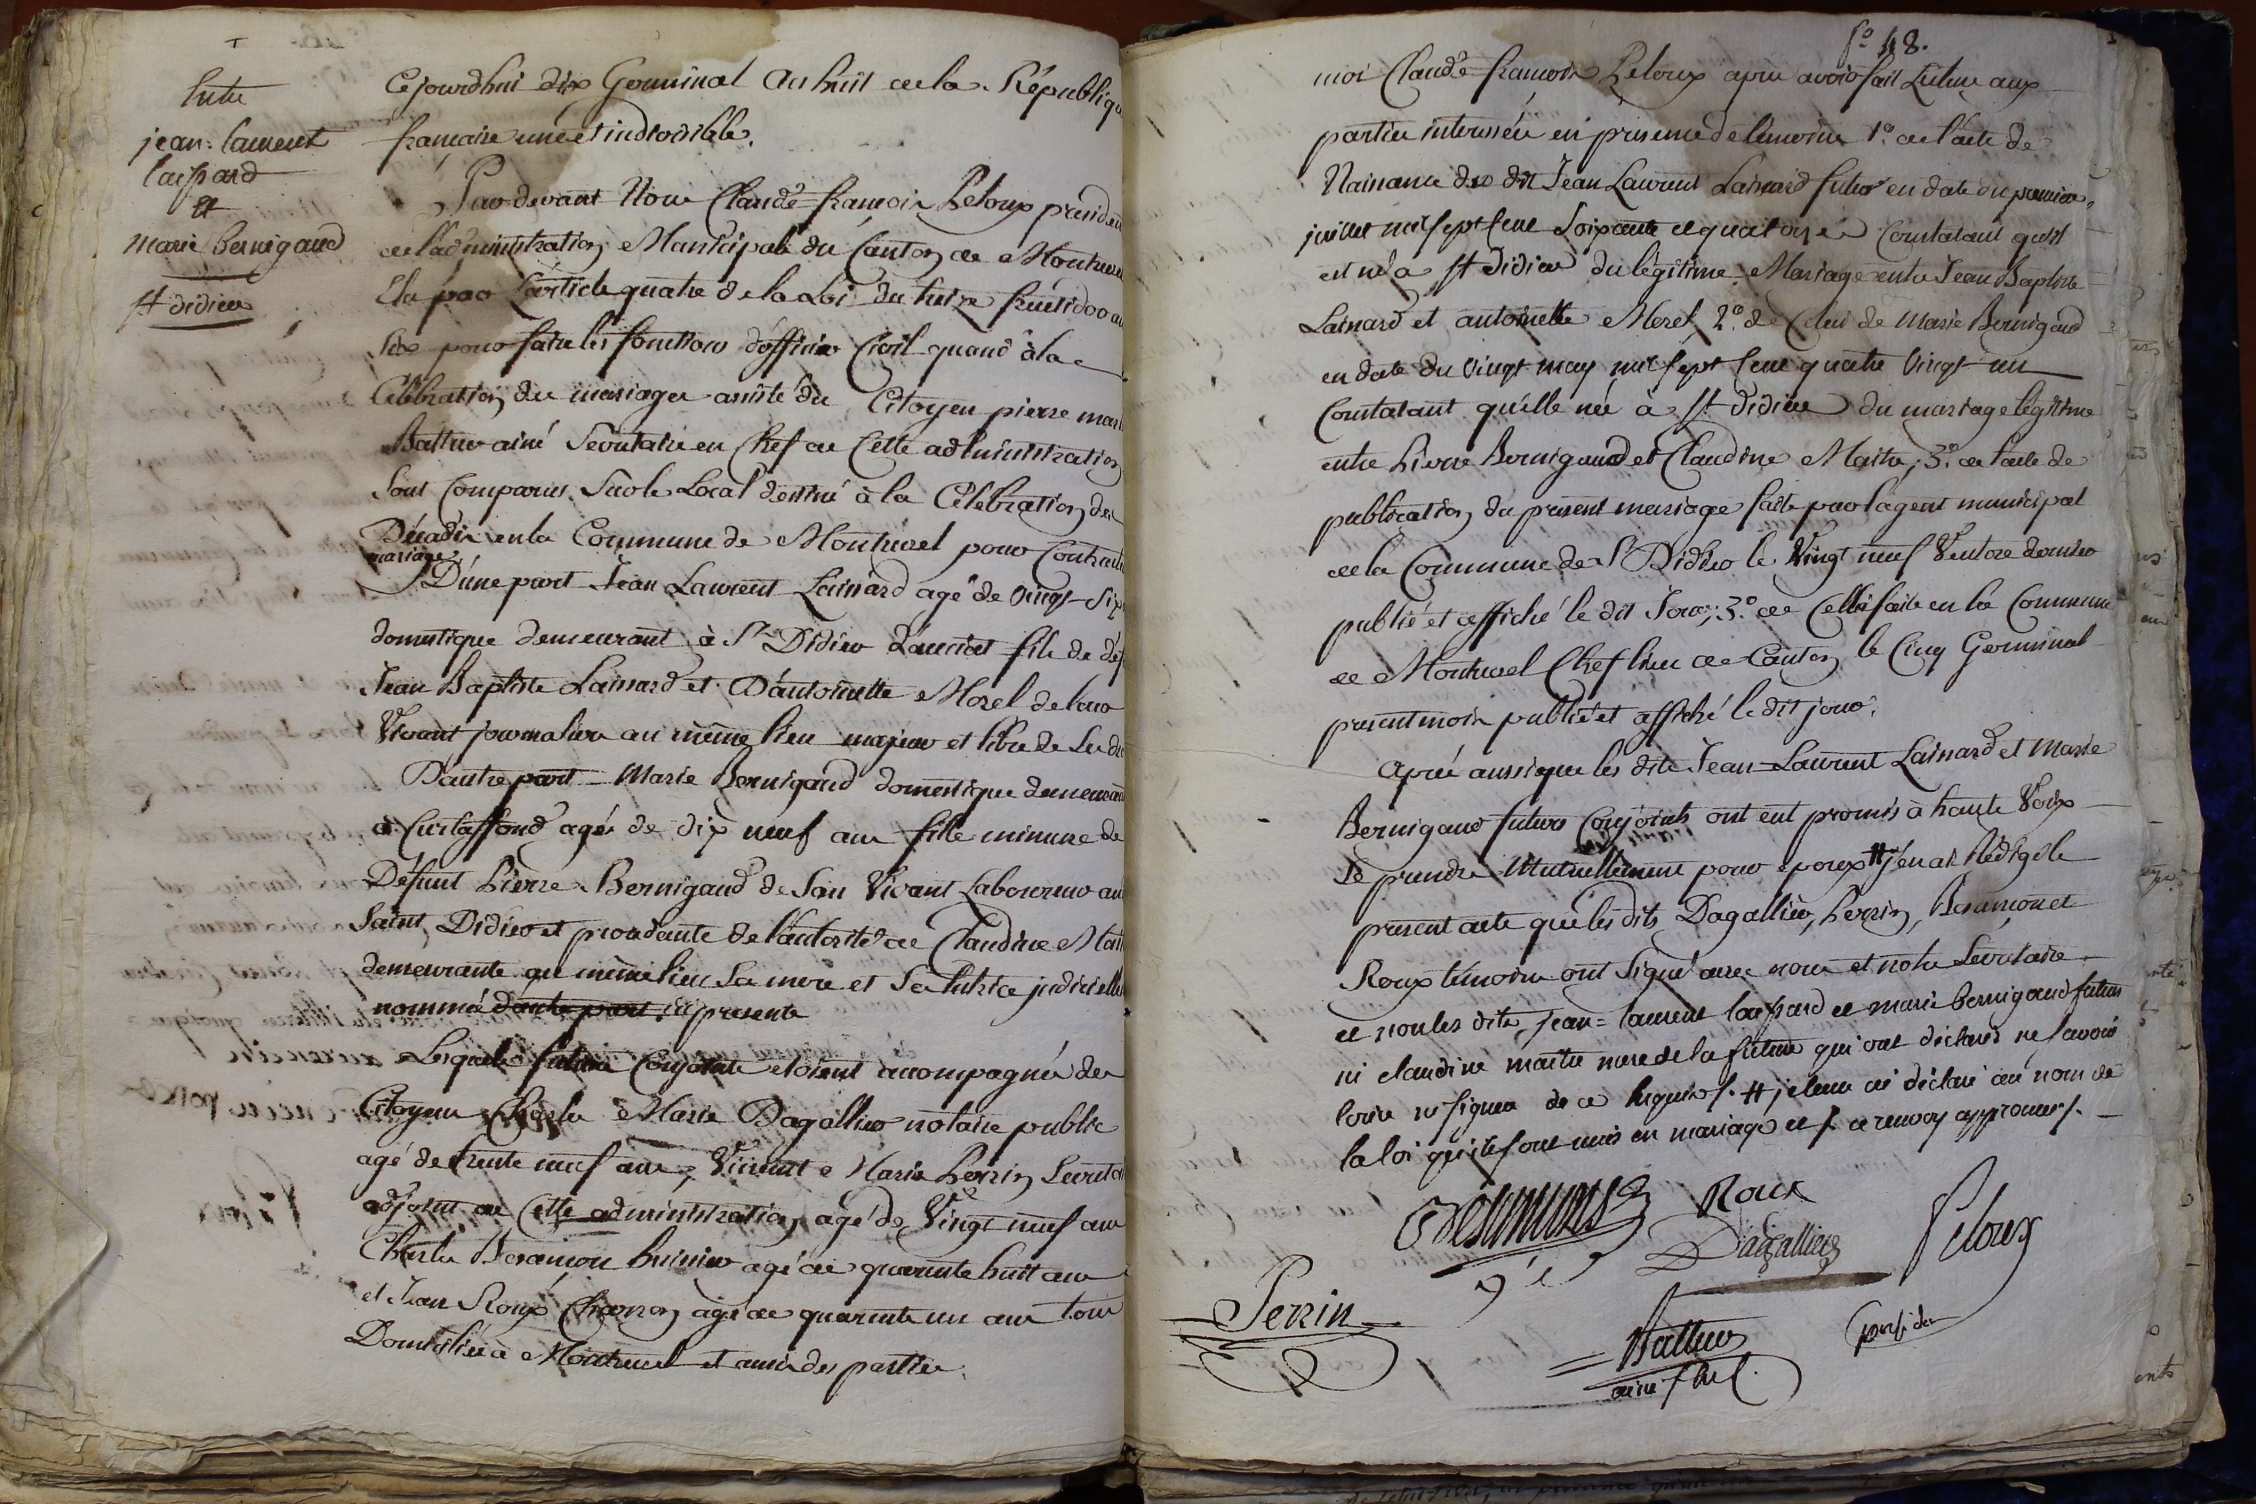 Entre
jean-laurent
lainard
Et
marie bernigaud
St didier
Cejourdhui dix Germinal an huit de la République
francaise une et indivisible.
Pardevant Nous Claude francois Peloux president
de l'administration Municipale du Canton de Montrevel
Elu par l'article quatre de la Loi du treize fructidor an
Six pour faire les fonctions d'officier Civil quand à la
Célébration des mariages assisté du Citoyen pierre marie
Battur ainé Secretaire en Chef de Cette administration
Sont Comparus Sur le Local destiné à la Célébration des
Décadis en la Commune de Montrevel pour Contracter
mariage
D'une part Jean Laurent Lainard agé de vingt-six
domestique demeurant à St Didier daussiat fils de déf
Jean Baptiste Lainard et D'antoinette Morel de leur
Vivant journaliers au même lieu majeur et libre de Ses dr
D'autre part Marie Bernigaud domestique demeurant
à Curtaffond agée de dix neuf ans fille mineure de
Défunt Pierre Bernigaud de Son Vivant Laboureur au
Saint Didier et procédante de l'autorité de Claudine Mait
demeurante au même lieu Sa mere et Sa tutrice judicielle
nommé d'autre part ici presente
Lesquels futurs Conjoints etoient accompagnés des
Citoyens Charles Marie Dagallier notaire public
agé de trente neuf ans, Vincent Marie Perrin Secretai
adjoint de Cette administration agé de Vingt neuf ans
Charles Besançon huissier agé de quarante huit ans
et Jean Roux Charron agé de quarante un ans tous
Domiciliés à Montrevel et amis des parties.
fo 48.
moi Claude francois Peloux après avoir fait Lecture aux
parties interessées en présence de témoins 1o. de l'acte de
Naissance du dit Jean Laurent Lainard futur en date du premier
juillet mil sept Cent Soixante et quatorze Constatant qu'il
est né à St Didier du légitime Mariage entre Jean Baptiste
Lainard et antoinette Morel 2o. de Celui de Marie Bernigaud
en date du vingt may mil sept Cent quatre Vingt un
Constatant qu'elle née à St didier du mariage légitime
entre Pierre Bernigaud et Claudine Maitre; 3o. de l'acte de
publication du présent mariage faite par l'agent municipal
de la Commune de St Didier le Vingt neuf Ventose dernier
publié et affiché le dit Jour; 3o. de Celle faite en la Commune
de Montrevel Chef lieu de Canton le Cinq Germinal
present mois publié et affiché le dit jour.
Après aussi que les dits Jean-Laurent Lainard et Marie
Bernigaud futurs Conjoints ont eut promis à haute Voix
de prendre Mutuellement pour epoux # j'en ai Rédigé le
present acte que les dits Dagallier, Perrin, Besançon et
Roux témoins ont Signé avec nous et notre Secrétaire
et non les dits jean-laurent lainard et marie bernigaud futurs
ni claudine maitre mere de la future qui ont déclarés ne savoir
ecrire ni signer de ce requis/. # je leur ai déclaré au nom de
la loi qu'ils sont unis en mariage et /. ce renvoy approuvé/.
Besançons
Roux
Dagallier
Peloux
Perrin
Battur
ainé
presiden